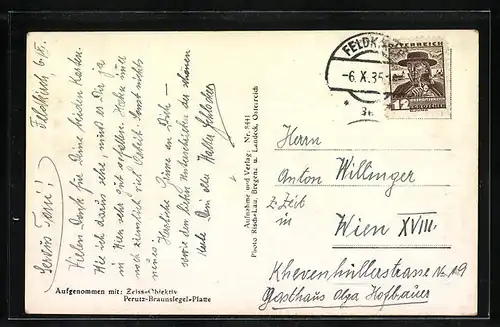 Feldkirch 6./X.
Servus Toni!
Vielen Dank für Deine beiden Karten.
Wie ich daraus sehe, muß es Dir ja
in Wien sehr gut gefallen. Haben
noch ziemlich viel Arbeit. Sonst nichts
neues.
Herzliche Grüsse an Dich –
sowie den beiden
Aufgenommen mit: Zeiss-Objektiv
Perutz-Braunsiegel-Platte
Aufnahme und Verlag: Nr. 8441
Photo Risch-Lau, Bregenz u. Landeck, Österreich
FELDK
-6.X.35-
ÖSTERREICH
12
Herrn
Anton Willinger
z. Zeit
in
Wien XVIII.
Khevenhüllerstrasse No. 9
Gasthaus Olga Hofbauer